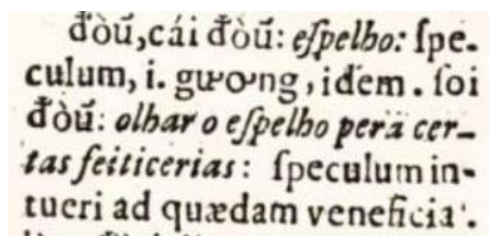 đòũ, cái đòũ: eſpelho: ſpe-
culum, i. gương, idem. ſoi
đòũ: olhar o eſpelho pera cer-
tas feiticerias: ſpeculum in-
tueri ad quædam veneficia.